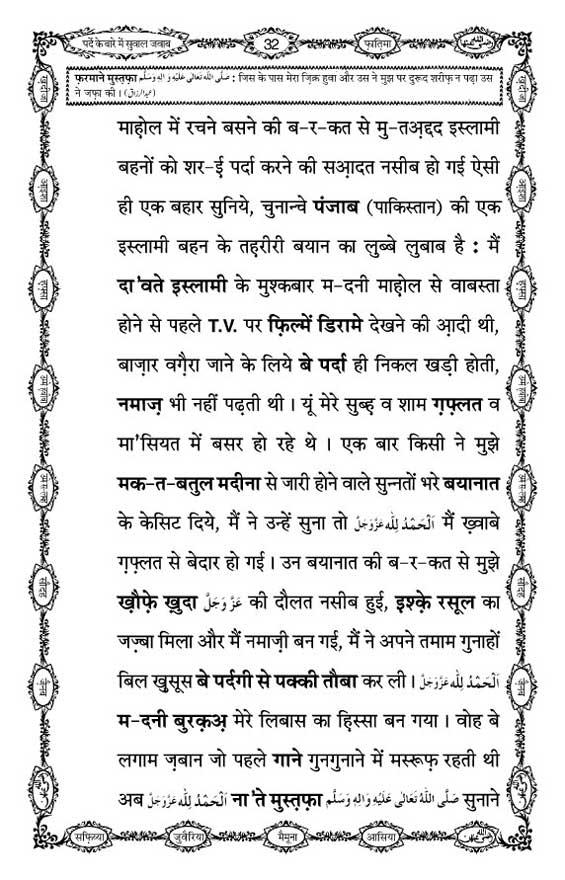 पर्दे के बारे में सुवाल जवाब
32
फ़ातिमा
फ़रमाने मुस्तफ़ा صَلَّى اللهُ تَعَالٰى عَلَيْهِ وَاٰلِهٖ وَسَلَّم : जिस के पास मेरा ज़िक्र हुवा और उस ने मुझ पर दुरूद शरीफ़ न पढ़ा उस
ने जफ़ा की। (عبدالرزاق)
माहोल में रचने बसने की ब-र-कत से मु-तअ़द्दद इस्लामी
बहनों को शर-ई पर्दा करने की सआ़दत नसीब हो गई ऐसी
ही एक बहार सुनिये, चुनान्चे पंजाब (पाकिस्तान) की एक
इस्लामी बहन के तह़रीरी बयान का लुब्बे लुबाब है : मैं
दा'वते इस्लामी के मुश्कबार म-दनी माह़ोल से वाबस्ता
होने से पहले T.V. पर फ़िल्में डिरामे देखने की आ़दी थी,
बाज़ार वग़ैरा जाने के लिये बे पर्दा ही निकल खड़ी होती,
नमाज़ भी नहीं पढ़ती थी। यूं मेरे सुब्ह़ व शाम ग़फ़्लत व
मा'सियत में बसर हो रहे थे। एक बार किसी ने मुझे
मक-त-बतुल मदीना से जारी होने वाले सुन्नतों भरे बयानात
के केसिट दिये, मैं ने उन्हें सुना तो اَلْحَمْدُ لِلّٰه عَزَّوَجَلَّ मैं ख़्वाबे
ग़फ़्लत से बेदार हो गई। उन बयानात की ब-र-कत से मुझे
ख़ौफ़े ख़ुदा عَزَّوَجَلَّ की दौलत नसीब हुई, इश्के़ रसूल का
जज़्बा मिला और मैं नमाज़ी बन गई, मैं ने अपने तमाम गुनाहों
बिल खुसूस बे पर्दगी से पक्की तौबा कर ली। اَلْحَمْدُ لِلّٰه عَزَّوَجَلَّ
म-दनी बुरक़अ़ मेरे लिबास का हि़स्सा बन गया। वोह बे
लगाम ज़बान जो पहले गाने गुनगुनाने में मस्रूफ़ रहती थी
अब اَلْحَمْدُ لِلّٰه عَزَّوَجَلَّ ना'ते मुस्त़फ़ा صَلَّى اللهُ تَعَالٰى عَلَيْهِ وَاٰلِهٖ وَسَلَّم सुनाने
सफ़िय्या
जुवैरिया
मैमूना
आसिया